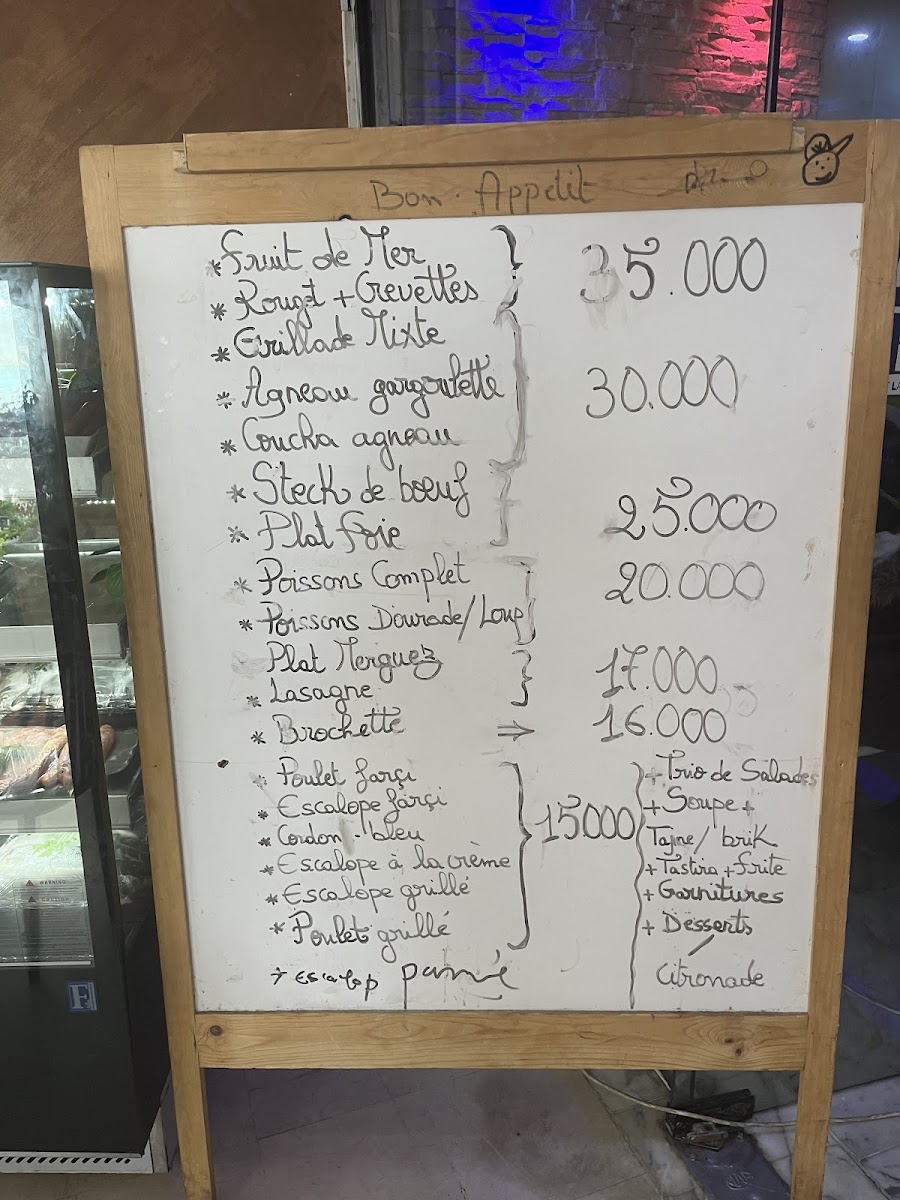 Bon Appetit
*Fruit de Mer
*Rouget + Crevettes
35.000
*Grillade Mixte
*Agneau gargoulette
*Coucha agneau
30.000
*Steck de boeuf
*Plat foie
25.000
*Poissons Complet
*Poissons Dourade/Loup
20.000
Plat Merguez
*Lasagne
17.000
*Brochette ⇒ 16.000
*Poulet farçi
*Escalope farçi
*Cordon-bleu
*Escalope à la crème
*Escalope grillé
*Poulet grillé
* Escalop pamé
15000
+Trio de Salades
+Soupe+
Tajne/brik
+Tastira+frite
+Garnitures
+Desserts
/
Citronade
WARNING
CAUTION
F